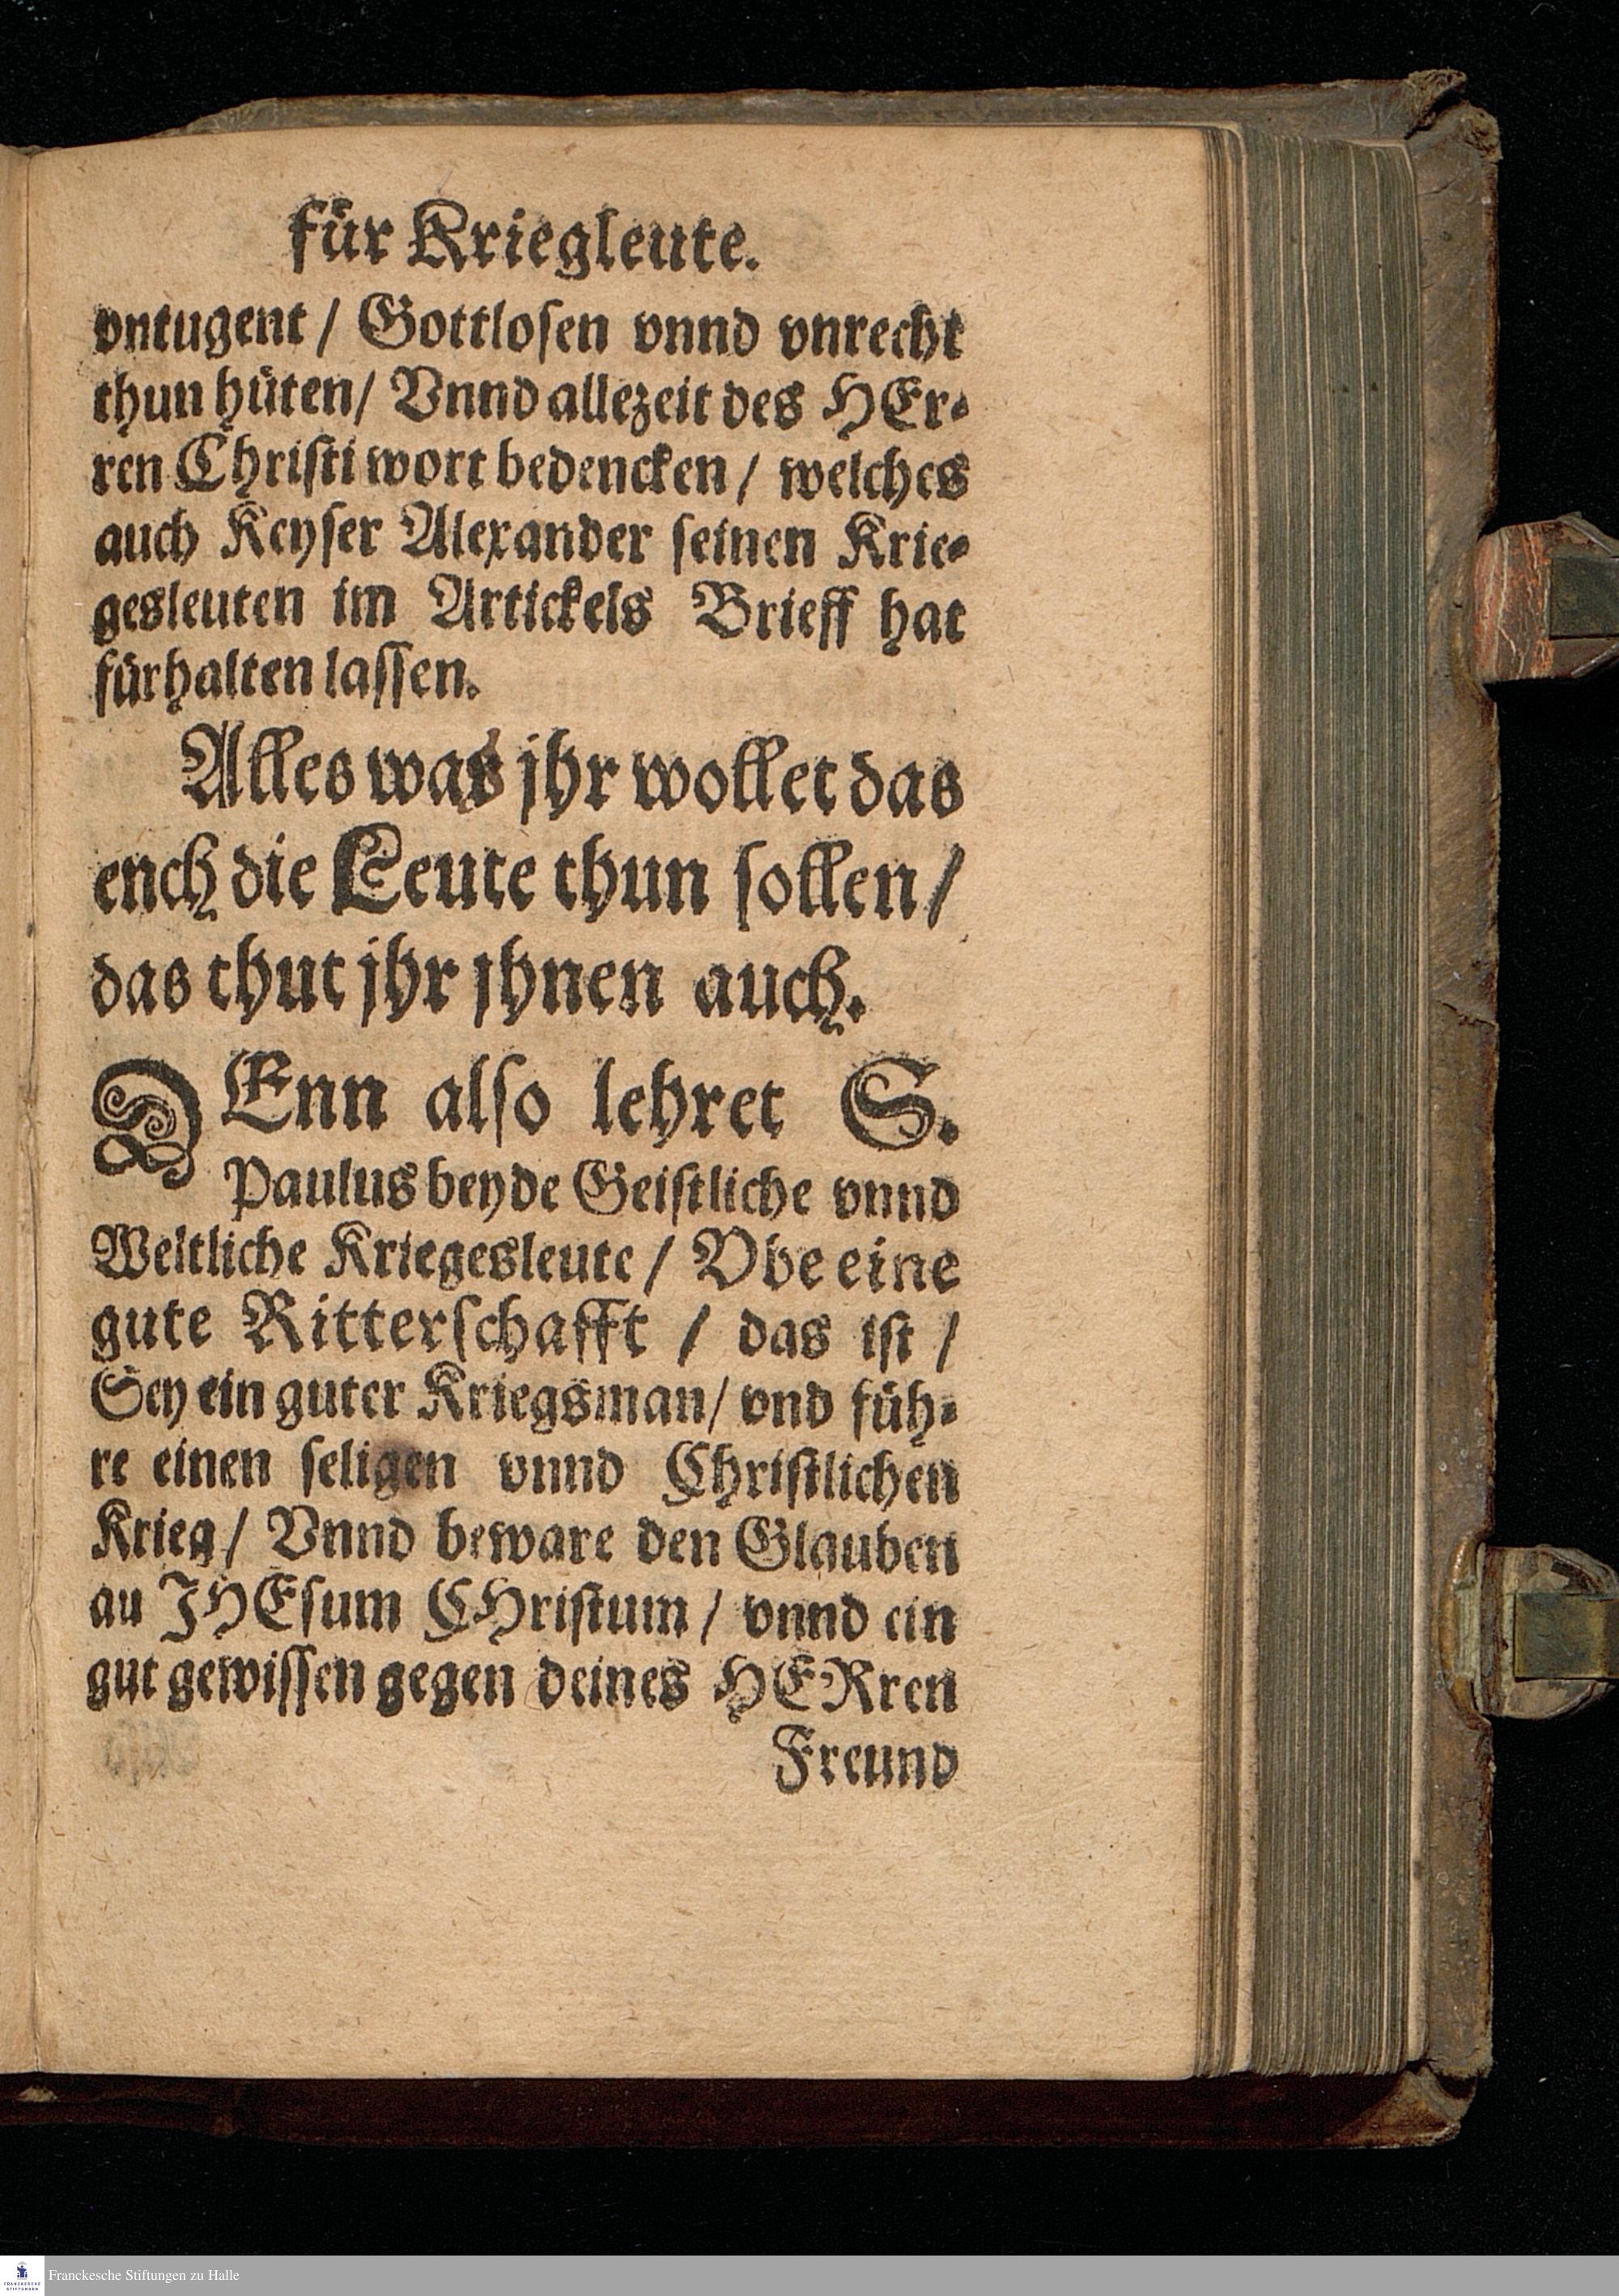 für Kriegleute.
vntugent / Gottlosen vnnd vnrecht
thun hüten / Vnnd allezeit des HEr-
ren Christi wort bedencken / welches
auch Keyser Alexander seinen Krie-
gesleuten im Artickels Brieff hat
fürhalten lassen.
Alles was jhr wollet das
ench die Leute thun sollen /
das thut jhr jhnen auch.
DEnn also lehret S.
Paulus beyde Geistliche vnnd
Weltliche Kriegesleute / Vbe eine
gute Ritterschafft / das ist /
Sey ein guter Kriegsman / vnd füh-
re einen seligen vnnd Christlichen
Krieg / Vnnd beware den Glauben
au JHEsum CHristum / vnnd ein
gut gewissen gegen deines HERren
Freund
FRANCKESCHE STIFTUNGEN
Franckesche Stiftungen zu Halle